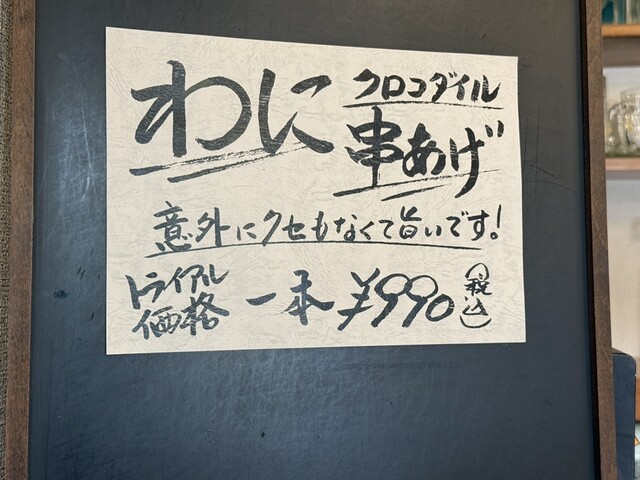 わに
クロコダイル
串あげ
意外にクセもなくて旨いです!
トライアル
価格
一本 ¥990 (税込)